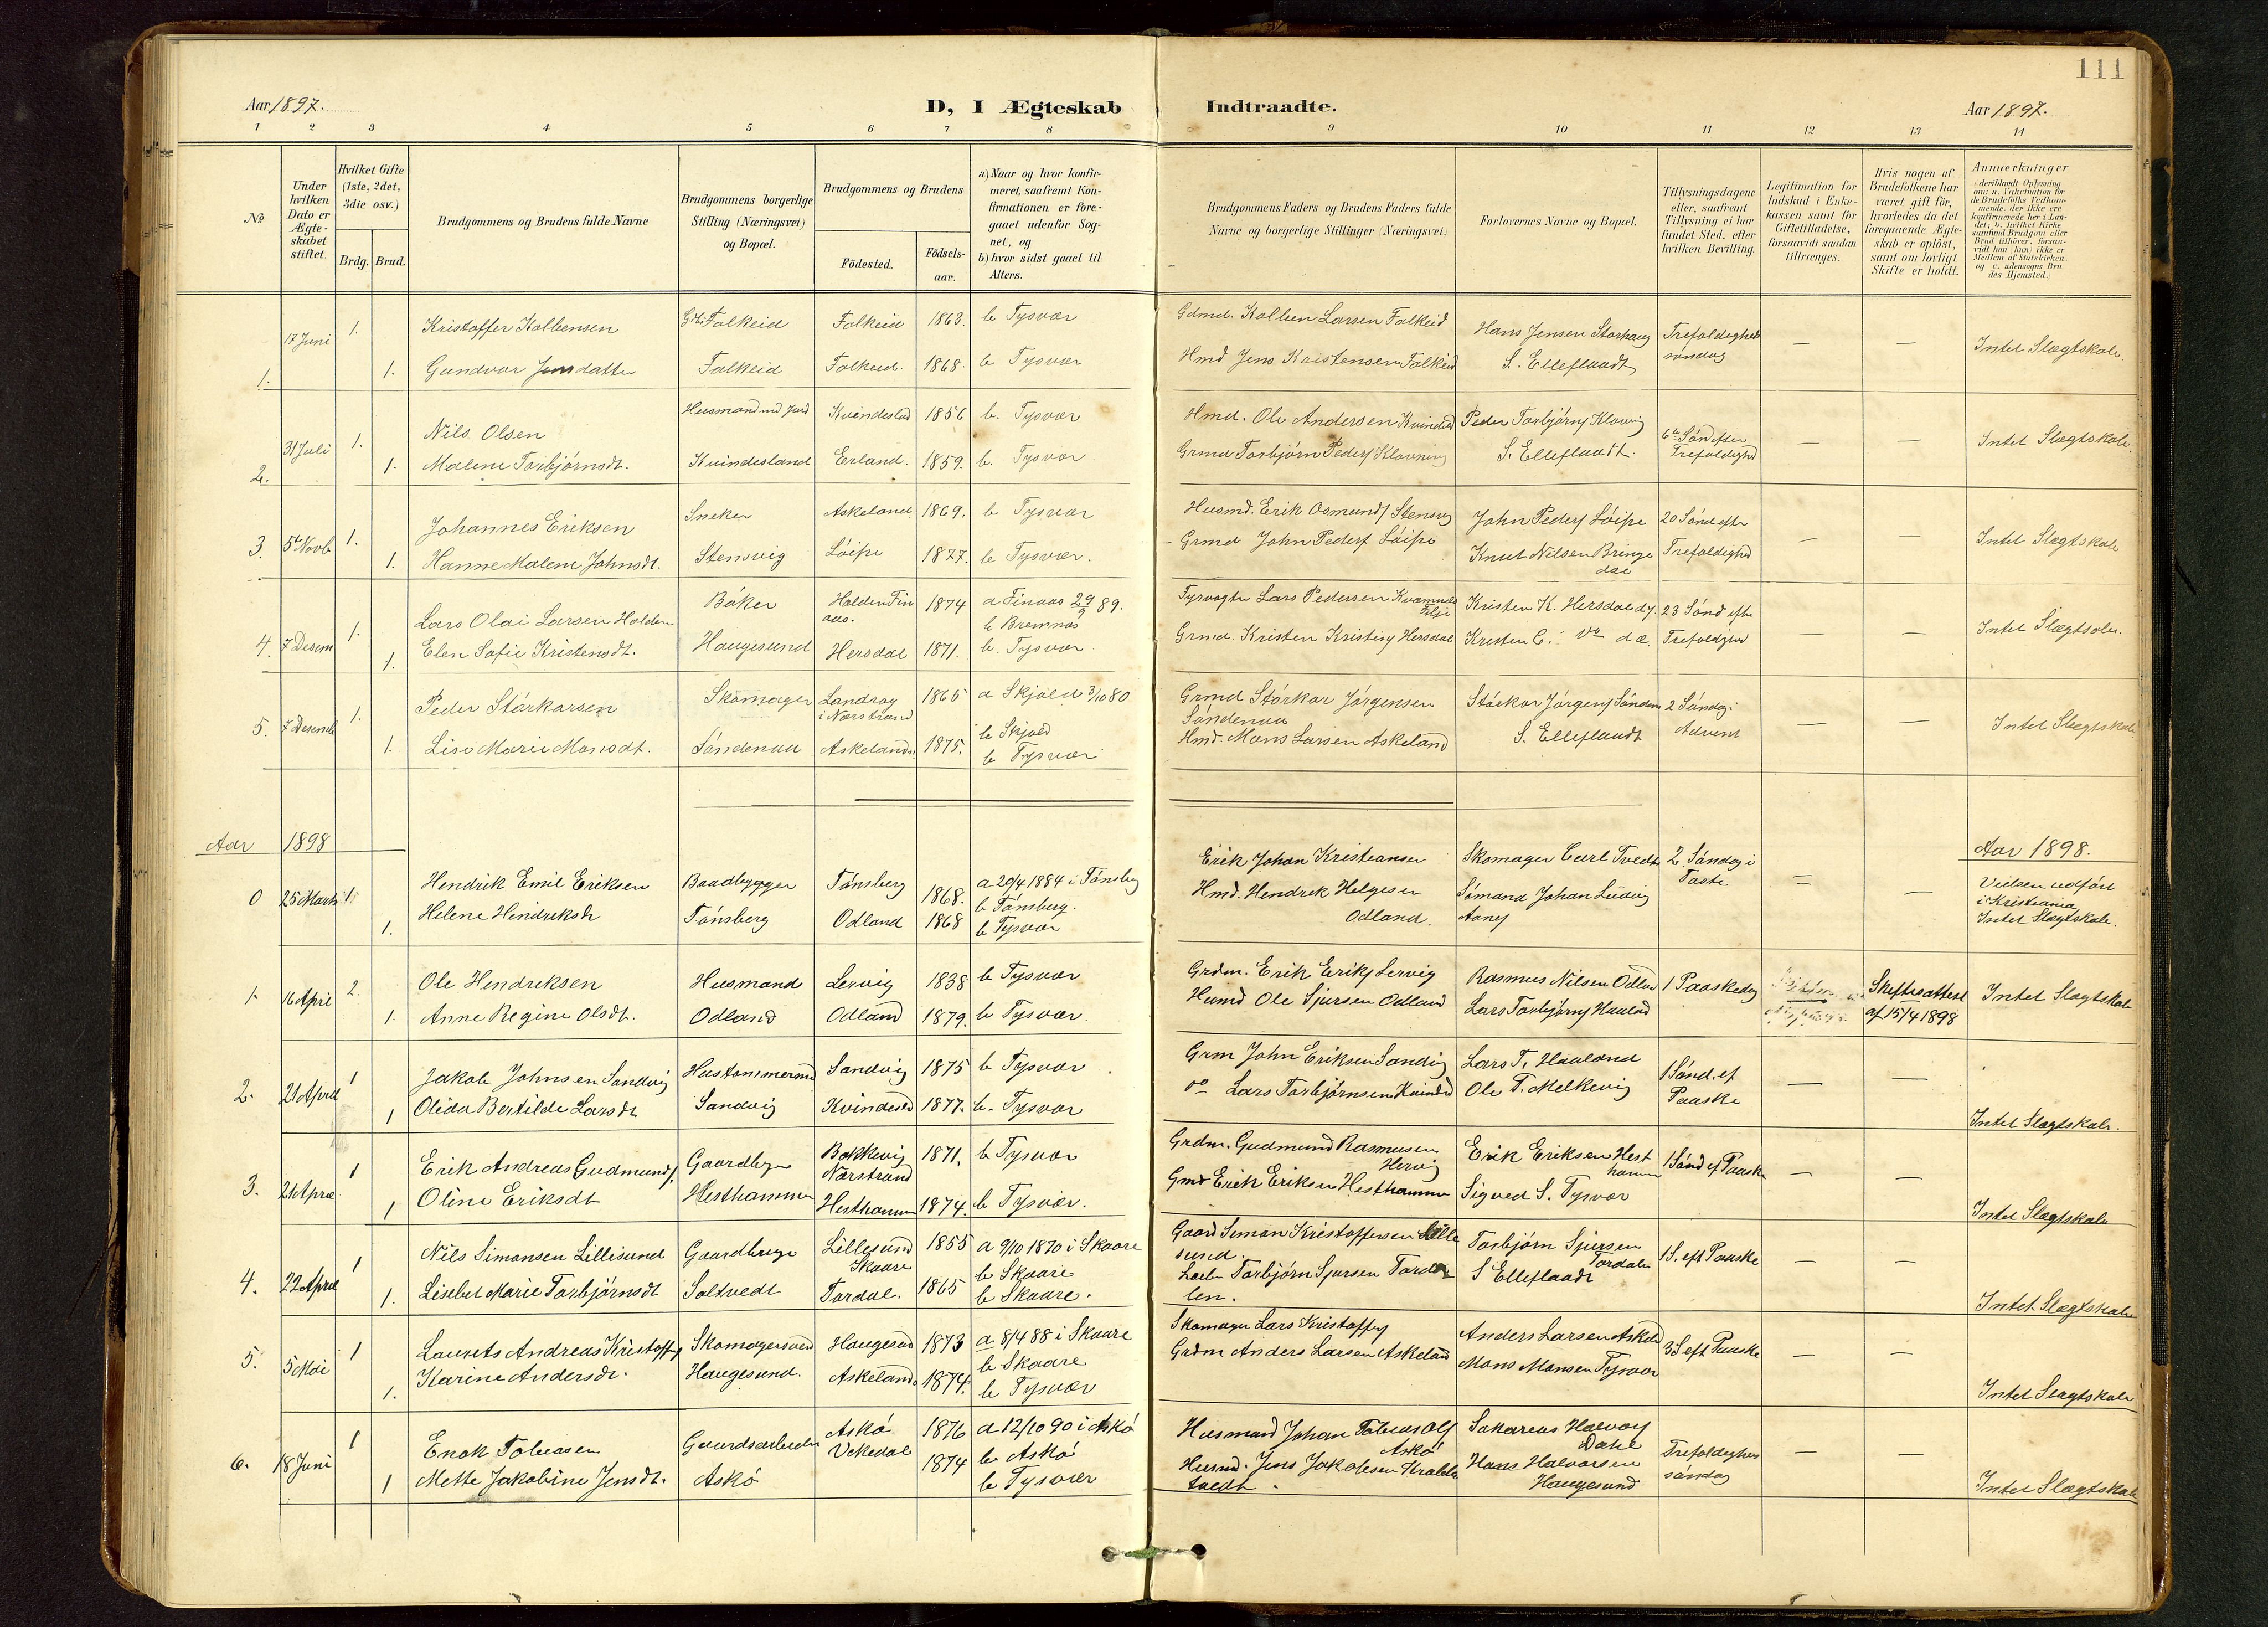 111
Aar 1897.
D, I Ægteskab Indtraadte.
Aar 1897.
1 2 3 4 5 6 7 8 9 10 11 12 13 14
No
Under hvilken Dato er Ægteskabet stiftet.
Hvilket Gifte (1ste, 2det, 3die osv.)
Brdg. Brud.
Brudgommens og Brudens fulde Navne
Brudgommens borgerlige Stilling (Næringsvei) og Bopæl.
Brudgommens og Brudens
Födested.
Födsels-aar.
a) Naar og hvor konfirmeret, saafremt Konfirmationen er foregaaet udenfor Sognet, og
b) hvor sidst gaaet til Alters.
Brudgommens Faders og Brudens Faders fulde Navne og borgerlige Stillinger (Næringsvei.
Forlovernes Navne og Bopæl.
Tillysningsdagene eller, saafremt Tillysning ei har fundet Sted, efter hvilken Bevilling.
Legitimation for Indskud i Enkekassen samt for Giftetilladelse, forsaavidt saadan tiltrænges.
Hvis nogen af Brudefolkene har været gift för, hvorledes da det foregaaende Ægteskab er oplöst, samt om lovligt Skifte er holdt.
Anmærkninger
(deriblandt Oplysning om: a. Vakcination for de Brudefolks Vedkommende, der ikke ere konfirmerede her i Landet; b. hvilket Kirkesamfund Brudgom eller Brud tilhörer, forsaavidt han (hun) ikke er Medlem af Statskirken. og c. udensogns Brudes Hjemsted.)
1. 17 Juni 1. Kristoffer Kolbensen Falkeid Falkeid 1863. b Tysvær Gdmd. Kolben Larsen Falkeid Hans Jensen Storhaug Trefoldigheds
1. Gundvor Jensdatter Falkeid Falkeid. 1868. b Tysvær Hmd Jens Kristensen Falkeid S. Elleflaadt søndag — — Intet Slægtskab.
2. 31 Juli 1. Nils Olsen Husmand md Jord 1856 b. Tysvær Hmd. Ole Andersen
1. Malene Torbjørnsdt. Kvindesland Erland. 1859. b. Tysvær S. Elleflaadt. Trefoldighd — — Intet Slægtskab.
3. 5te Novb 1. Johannes Eriksen Sneker Askeland 1869. b Tysvær Husmd. Erik Osmunds Stensvg John Peders Löipe 20 Sönd eftr
1. Hanne Malene Johnsdt. Stensvig Löipe 1877. b Tysvær. Grmd John Peders Löipe Knut Nilsen Bringedal Trefoldighd — — Intet Slægtskab
4. 7 Desem 1. Lars Olai Larsen Holden Böker Holden Finaas. 1874 a Finaas 29/9 89. b Bremnæs Lars Pedersen Kristen K. Hersdal 23 Sönd eftr
1. Elen Sofie Kristensdt. Haugesund Hersdal 1871. b. Tysvær. Grmd. Kristen Hersdal Trefoldighd — —
5. 7 Desemb 1. Peder Störkarsen Skomager i Nærstrand 1865 a Skjold 3/10 80 b Skjold Grmd Störkar Jörgensen Söndenaa Störkar Jörgens 2 Söndag i
1. Lise Marie Monsdt. Söndenaa Askeland. 1875. b Tysvær Hmd. Mons Larsen Askeland S. Elleflaadt Advent — — Intet Slægtskab
Aar 1898
Aar 1898.
0 25 Marts 1. Hendrik Emil Eriksen Baadbygger Tönsberg 1868. a 20/4 1884 i Tönsberg b Tönsberg. Erik Johan Kristiansen Skomager Carl Tvedt 2 Söndag i Faste = —
1. Helene Hendriksdt Tönsberg Odland 1868 b Tysvær Hmd. Hendrik Helgesen Odland. Sömand Johan Ludvig Vielsen udført i Kristiania Intet Slægtskab.
1. 16 April 2. Ole Hendriksen Husmand Lervig 1838 b Tysvær Grdm. Erik Eriks Lervig Rasmus Nilsen Odland 1 Paaskedag Skifteattest af 15/4 1898 Intet Slægtskab
1. Anne Regine Olsdt. Odland Odland 1879. b Tysvær Husmd Ole Sjursen Odland Lars Torbjörns Haaland
2. 21 April 1 Jakob Johnsen Sandvig Hustömmermd Sandvig 1875 b Tysvær Grm John Eriksen Sandvig Lars T. Haaland 1 Sönd. ef Paaske — —
1 Olida Bertilde Larsdt Sandvig 1877. b. Tysvær do Lars Torbjörnsen Ole T. Melkevig Intet Slægtskab.
3. 21 April 1 Erik Andreas Gudmunds. Gaardbruger Bokkevig Nærstrand 1871. b Tysvær Grdm. Gudmund Rasmusen Hervig Erik Eriksen Hesthammer 1 Sönd ef Paaske — —
1 Oline Eriksdt Hesthammer Hesthammer 1874. b Tysvær. Gmd Erik Eriksen Hesthammer Sigved S. Tysvær Intet Slægtskab
4. 22 April 1 Nils Simonsen Lillesund Gaardbruger Lillesund Skaare 1855 a 9/10 1870 i Skaare b Skaare Gaard Simon Kristoffersen Lillesund. Torbjörn Sjursen Tordalen 1 S. eft Paaske — —
1. Lisebet Marie Torbjörnsdt Saltvedt Tordal. 1865 b Skaare. Torbjörn Sjursen Tordalen. S Elleflaadt Intet Slægtskab
5. 5 Mai 1 Laurets Andreas Kristoffs Skomagersvend Haugesund 1873 a 8/4 88 i Skaare b Skaare Skomager Lars Kristoffers Anders Larsen Askeld 3 S eft Paaske — —
1. Karine Andersdt. Haugesund. Askeland. 1874. b Tysvær Grdm Anders Larsen Askeland Mons Monsen Tysvær Intet Slægtskab
6. 18 Juni 1 Enok Tobiasen Gaardsarbeider Askö 1876 a 12/10 90 i Askö b Askö Husmand Johan Tobias Ols Askö Sakarias Halvors Dahle Trefoldigheds
1 Mette Jakobine Jensdt. Askö 1874 b Tysvær Husmd. Jens Jakobsen Hans Halvorsen Haugesund söndag — — Intet Slægtskab